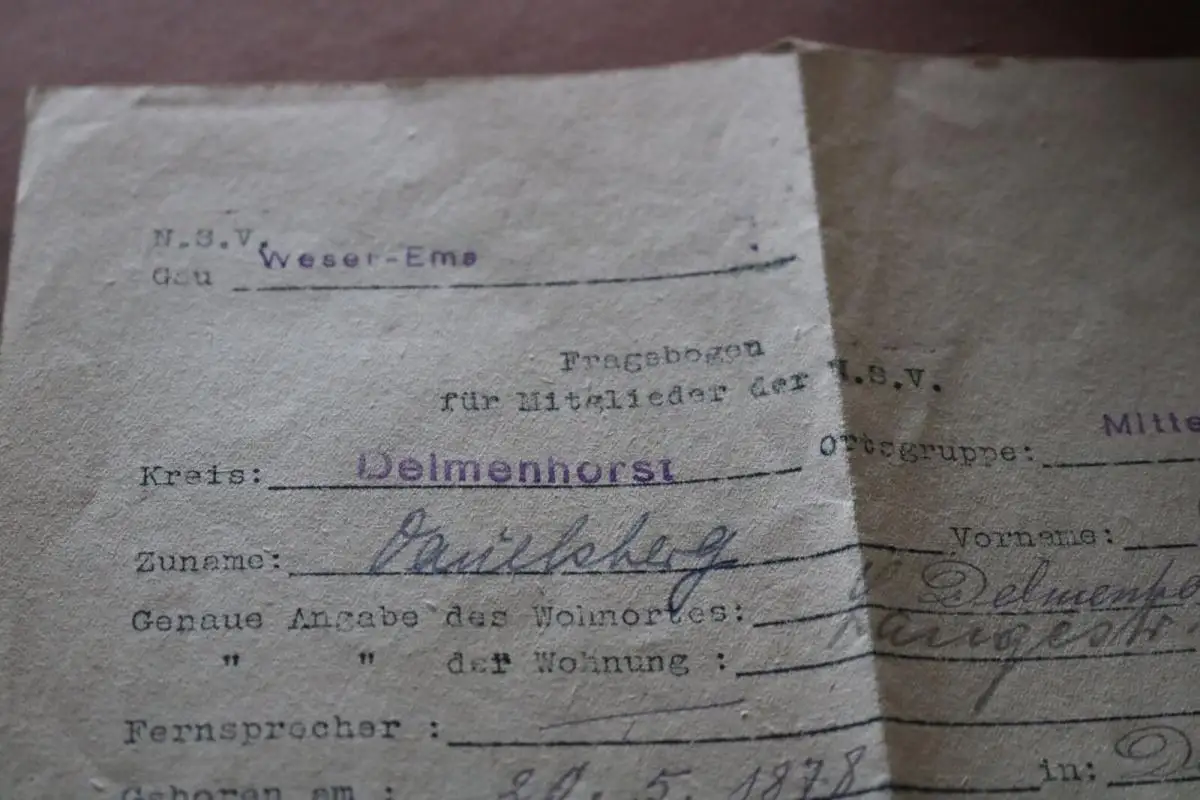 N.S.V.
Gau Weser-Ems
Fragebogen
für Mitglieder der N.S.V.
Kreis: Delmenhorst Ortsgruppe: Mitte
Zuname: Vorname:
Genaue Angabe des Wohnortes: Delmenho
" " der Wohnung : Langestr.
Fernsprecher :
Geboren am : 20. 5. 1878 in: D